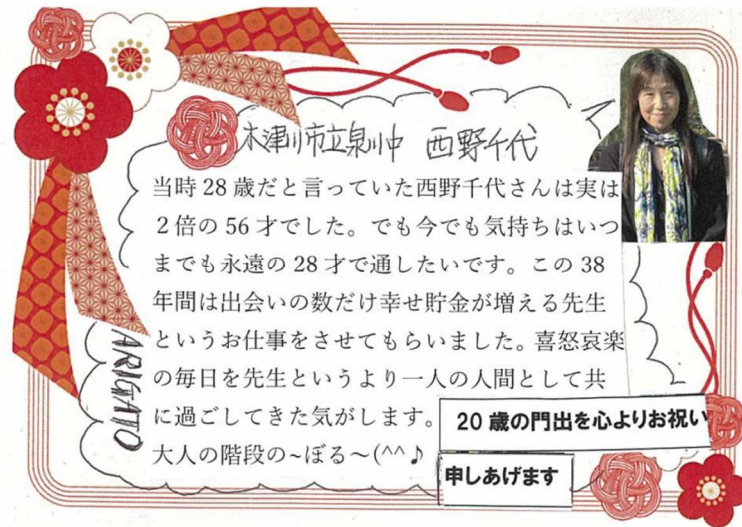 木津川市立泉川中 西野千代
当時 28 歳だと言っていた西野千代さんは実は
2倍の 56 才でした。でも今でも気持ちはいつ
までも永遠の 28 才で通したいです。この 38
年間は出会いの数だけ幸せ貯金が増える先生
というお仕事をさせてもらいました。喜怒哀楽
の毎日を先生というより一人の人間として共
に過ごしてきた気がします。
大人の階段の~ぼる～(^^♪
ARIGATO
20 歳の門出を心よりお祝い
申しあげます